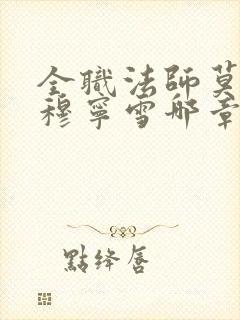 全職法師莫
穆寧雪那章
點絳唇